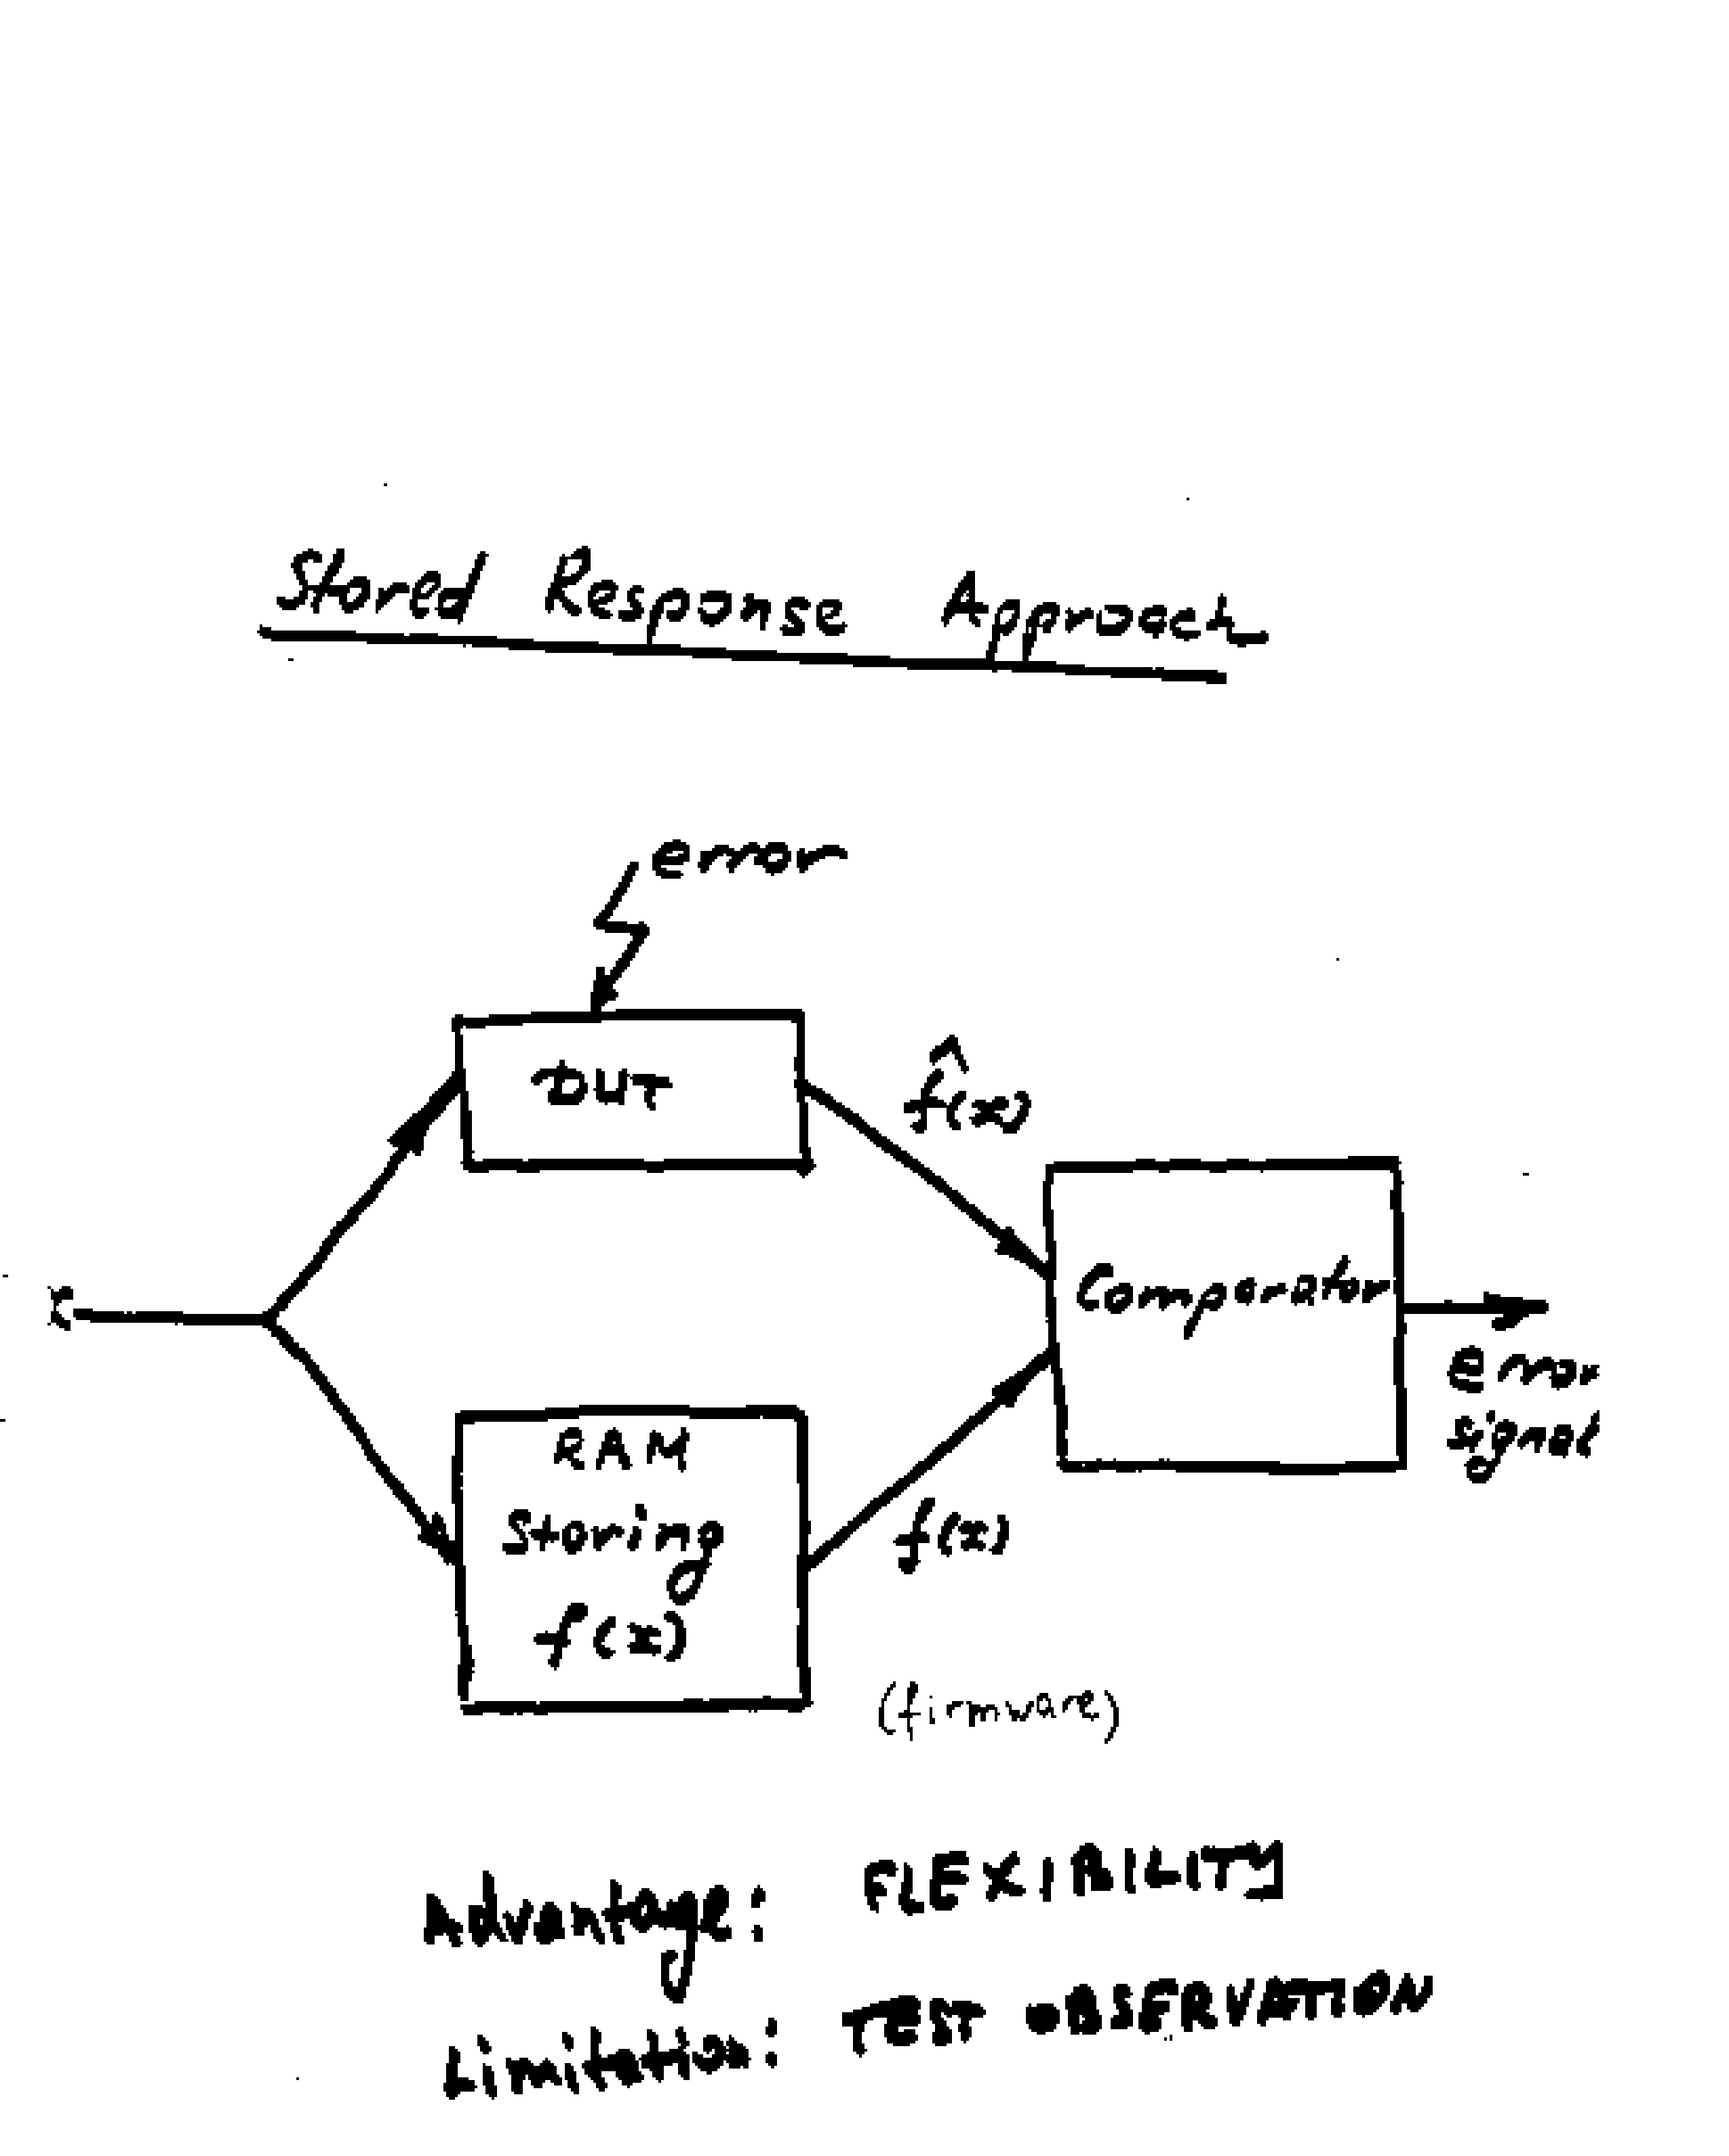 Stored Response Approach
error
DUT
f̂(x)
x
Comparator
error
signal
RAM
Storing
f(x)
f(x)
(firmware)
Advantage: FLEXIBILITY
Limitation: TEST OBSERVATION